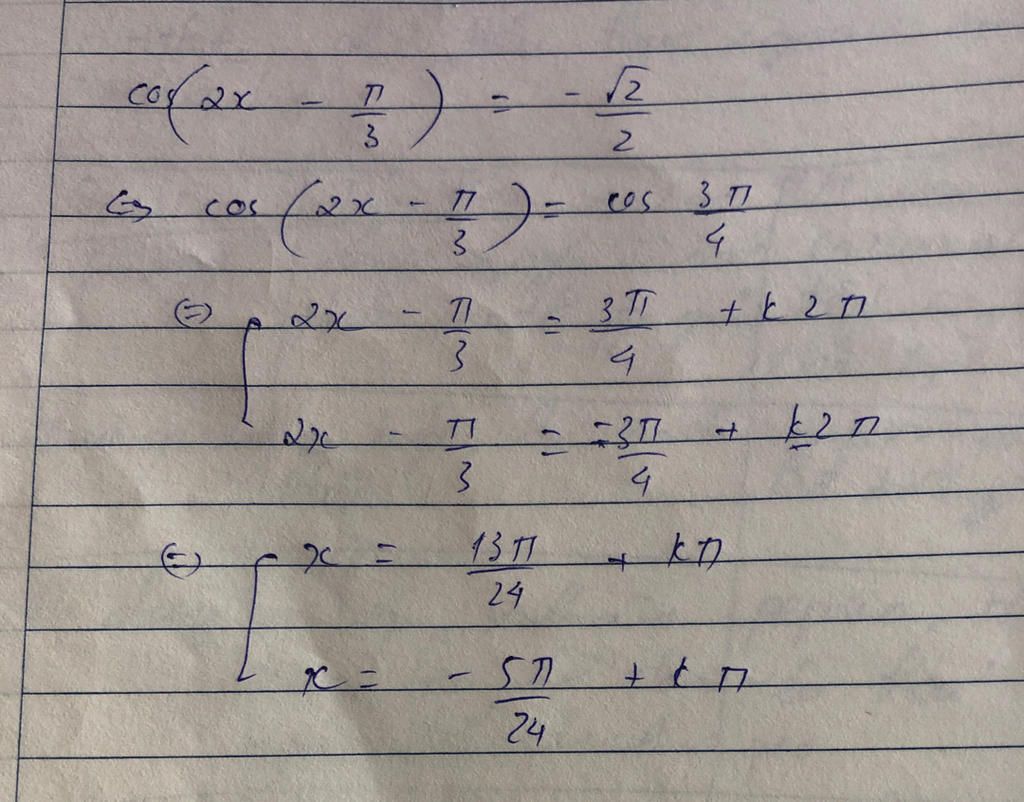 cos(2x - π/3) = -√2/2
⇔ cos(2x - π/3) = cos 3π/4
⇔ [ 2x - π/3 = 3π/4 + k2π
2x - π/3 = -3π/4 + k2π
⇔ [ x = 13π/24 + kπ
x = -5π/24 + kπ